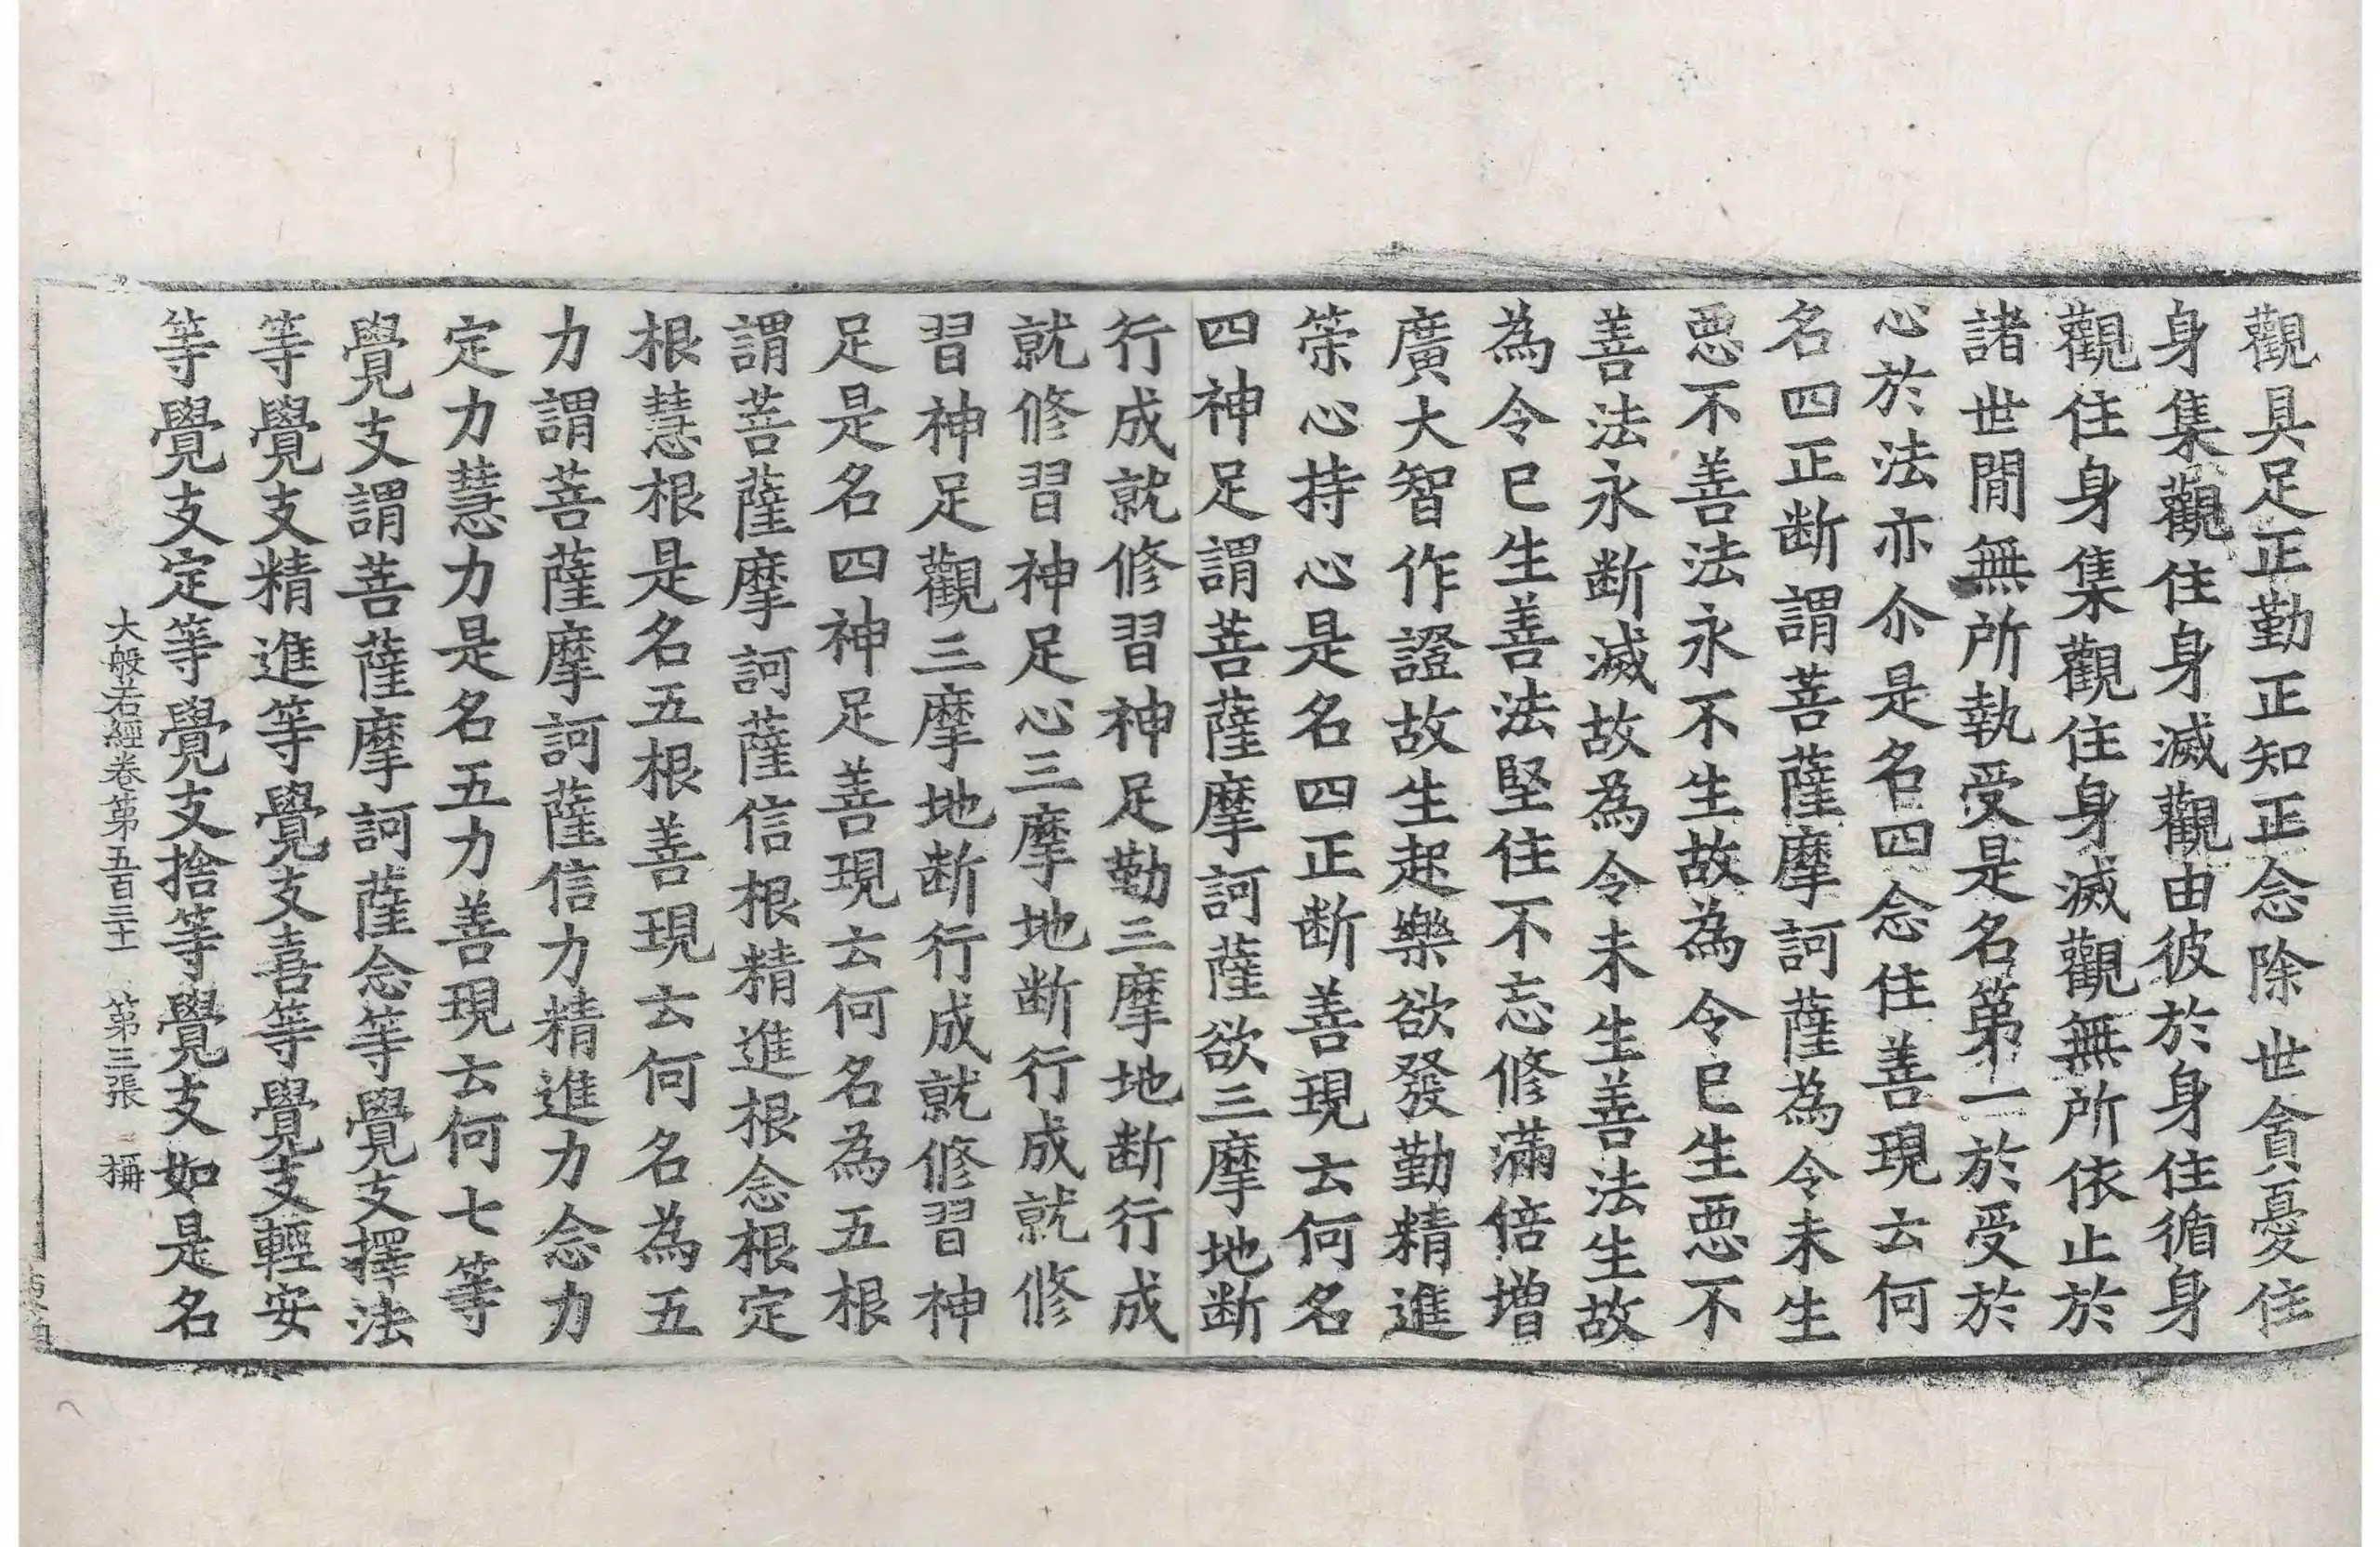 觀具足正勤正知正念除世貪憂住
身集觀住身滅觀由彼於身住循身
觀住身集觀住身滅觀無所依止於
諸世間無所執受是名第一於受於
心於法亦尒是名四念住善現云何
名四正断謂菩薩摩訶薩為令未生
惡不善法永不生故為令已生惡不
善法永断滅故為令未生善法生故
為令已生善法堅住不忘修滿倍增
廣大智作證故生起樂欲發勤精進
䇿心持心是名四正断善現云何名
四神足謂菩薩摩訶薩欲三摩地断
行成就修習神足勤三摩地断行成
就修習神足心三摩地断行成就修
習神足觀三摩地断行成就修習神
足是名四神足善現云何名為五根
謂菩薩摩訶薩信根精進根念根定
根慧根是名五根善現云何名為五
力謂菩薩摩訶薩信力精進力念力
定力慧力是名五力善現云何七等
覺支謂菩薩摩訶薩念等覺支擇法
等覺支精進等覺支喜等覺支輕安
等覺支定等覺支捨等覺支如是名
大般若經卷第五百三十一 第三張 稱